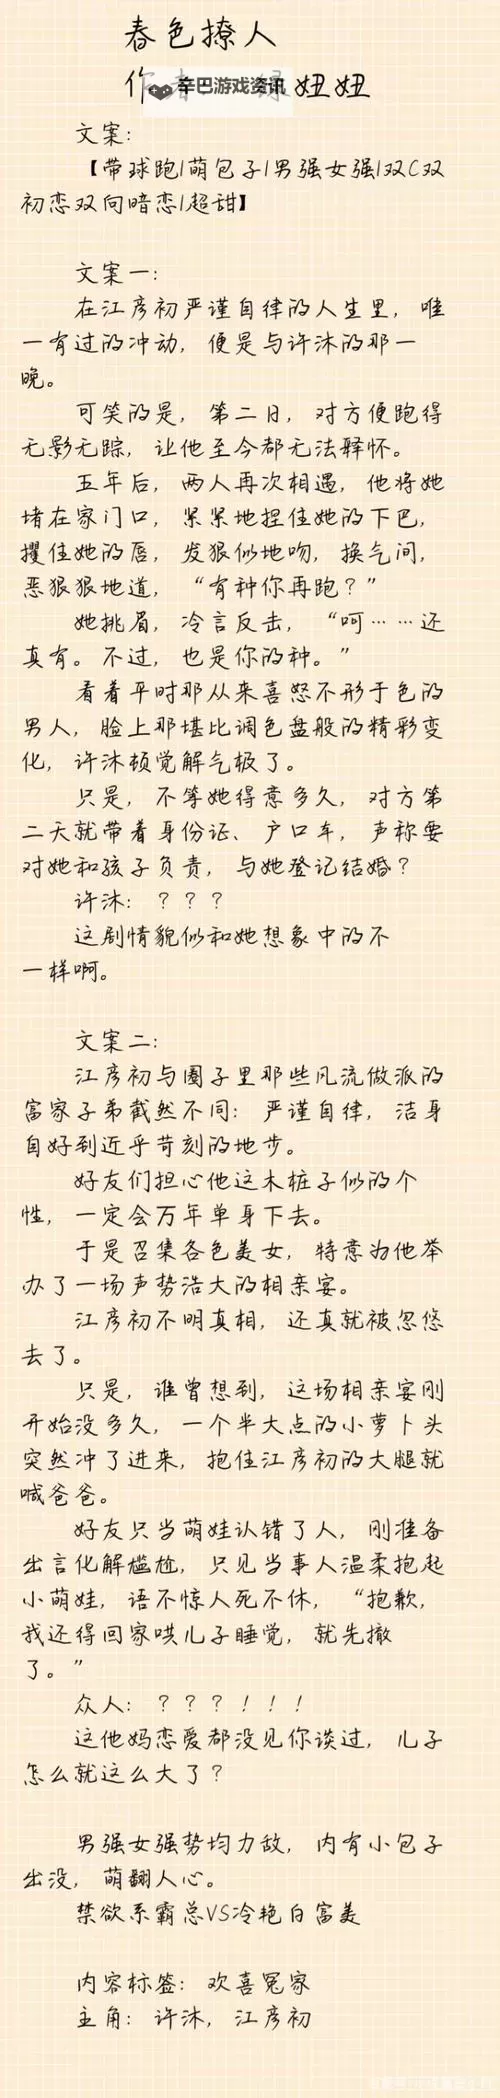 春色撩人
作者：绿妞妞
辛巴游戏资讯
文案：
【带球跑|萌包子|男强女强|双C双
初恋双向暗恋|超甜】
文案一：
在江彦初严谨自律的人生里，唯
一有过的冲动，便是与许沐的那一
晚。
可笑的是，第二日，对方便跑得
无影无踪，让他至今都无法释怀。
五年后，两人再次相遇，他将她
堵在家门口，紧紧地捏住她的下巴，
攫住她的唇，发狠似地吻，换气间，
恶狠狠地道，“有种你再跑？”
她挑眉，冷言反击，“呵……还
真有。不过，也是你的种。”
看着平时那从来喜怒不形于色的
男人，脸上那堪比调色盘般的精彩变
化，许沐顿觉解气极了。
只是，不等她得意多久，对方第
二天就带着身份证、户口本，声称要
对她和孩子负责，与她登记结婚？
许沐：？？？
这剧情貌似和她想象中的不
一样啊。
文案二：
江彦初与圈子里那些风流做派的
富家子弟截然不同：严谨自律，洁身
自好到近乎苛刻的地步。
好友们担心他这木桩子似的个
性，一定会万年单身下去。
于是召集各色美女，特意为他举
办了一场声势浩大的相亲宴。
江彦初不明真相，还真就被忽悠
去了。
只是，谁曾想到，这场相亲宴刚
开始没多久，一个半大点的小萝卜头
突然冲了进来，抱住江彦初的大腿就
喊爸爸。
好友只当萌娃认错了人，刚准备
出言化解尴尬，只见当事人温柔抱起
小萌娃，语不惊人死不休，“抱歉，
我还得回家哄儿子睡觉，就先撤
了。”
众人：？？？！！！
这他妈恋爱都没见你谈过，儿子
怎么就这么大了？
男强女强势均力敌，内有小包子
出没，萌翻人心。
禁欲系霸总VS冷艳白富美
内容标签：欢喜冤家
主角：许沐，江彦初